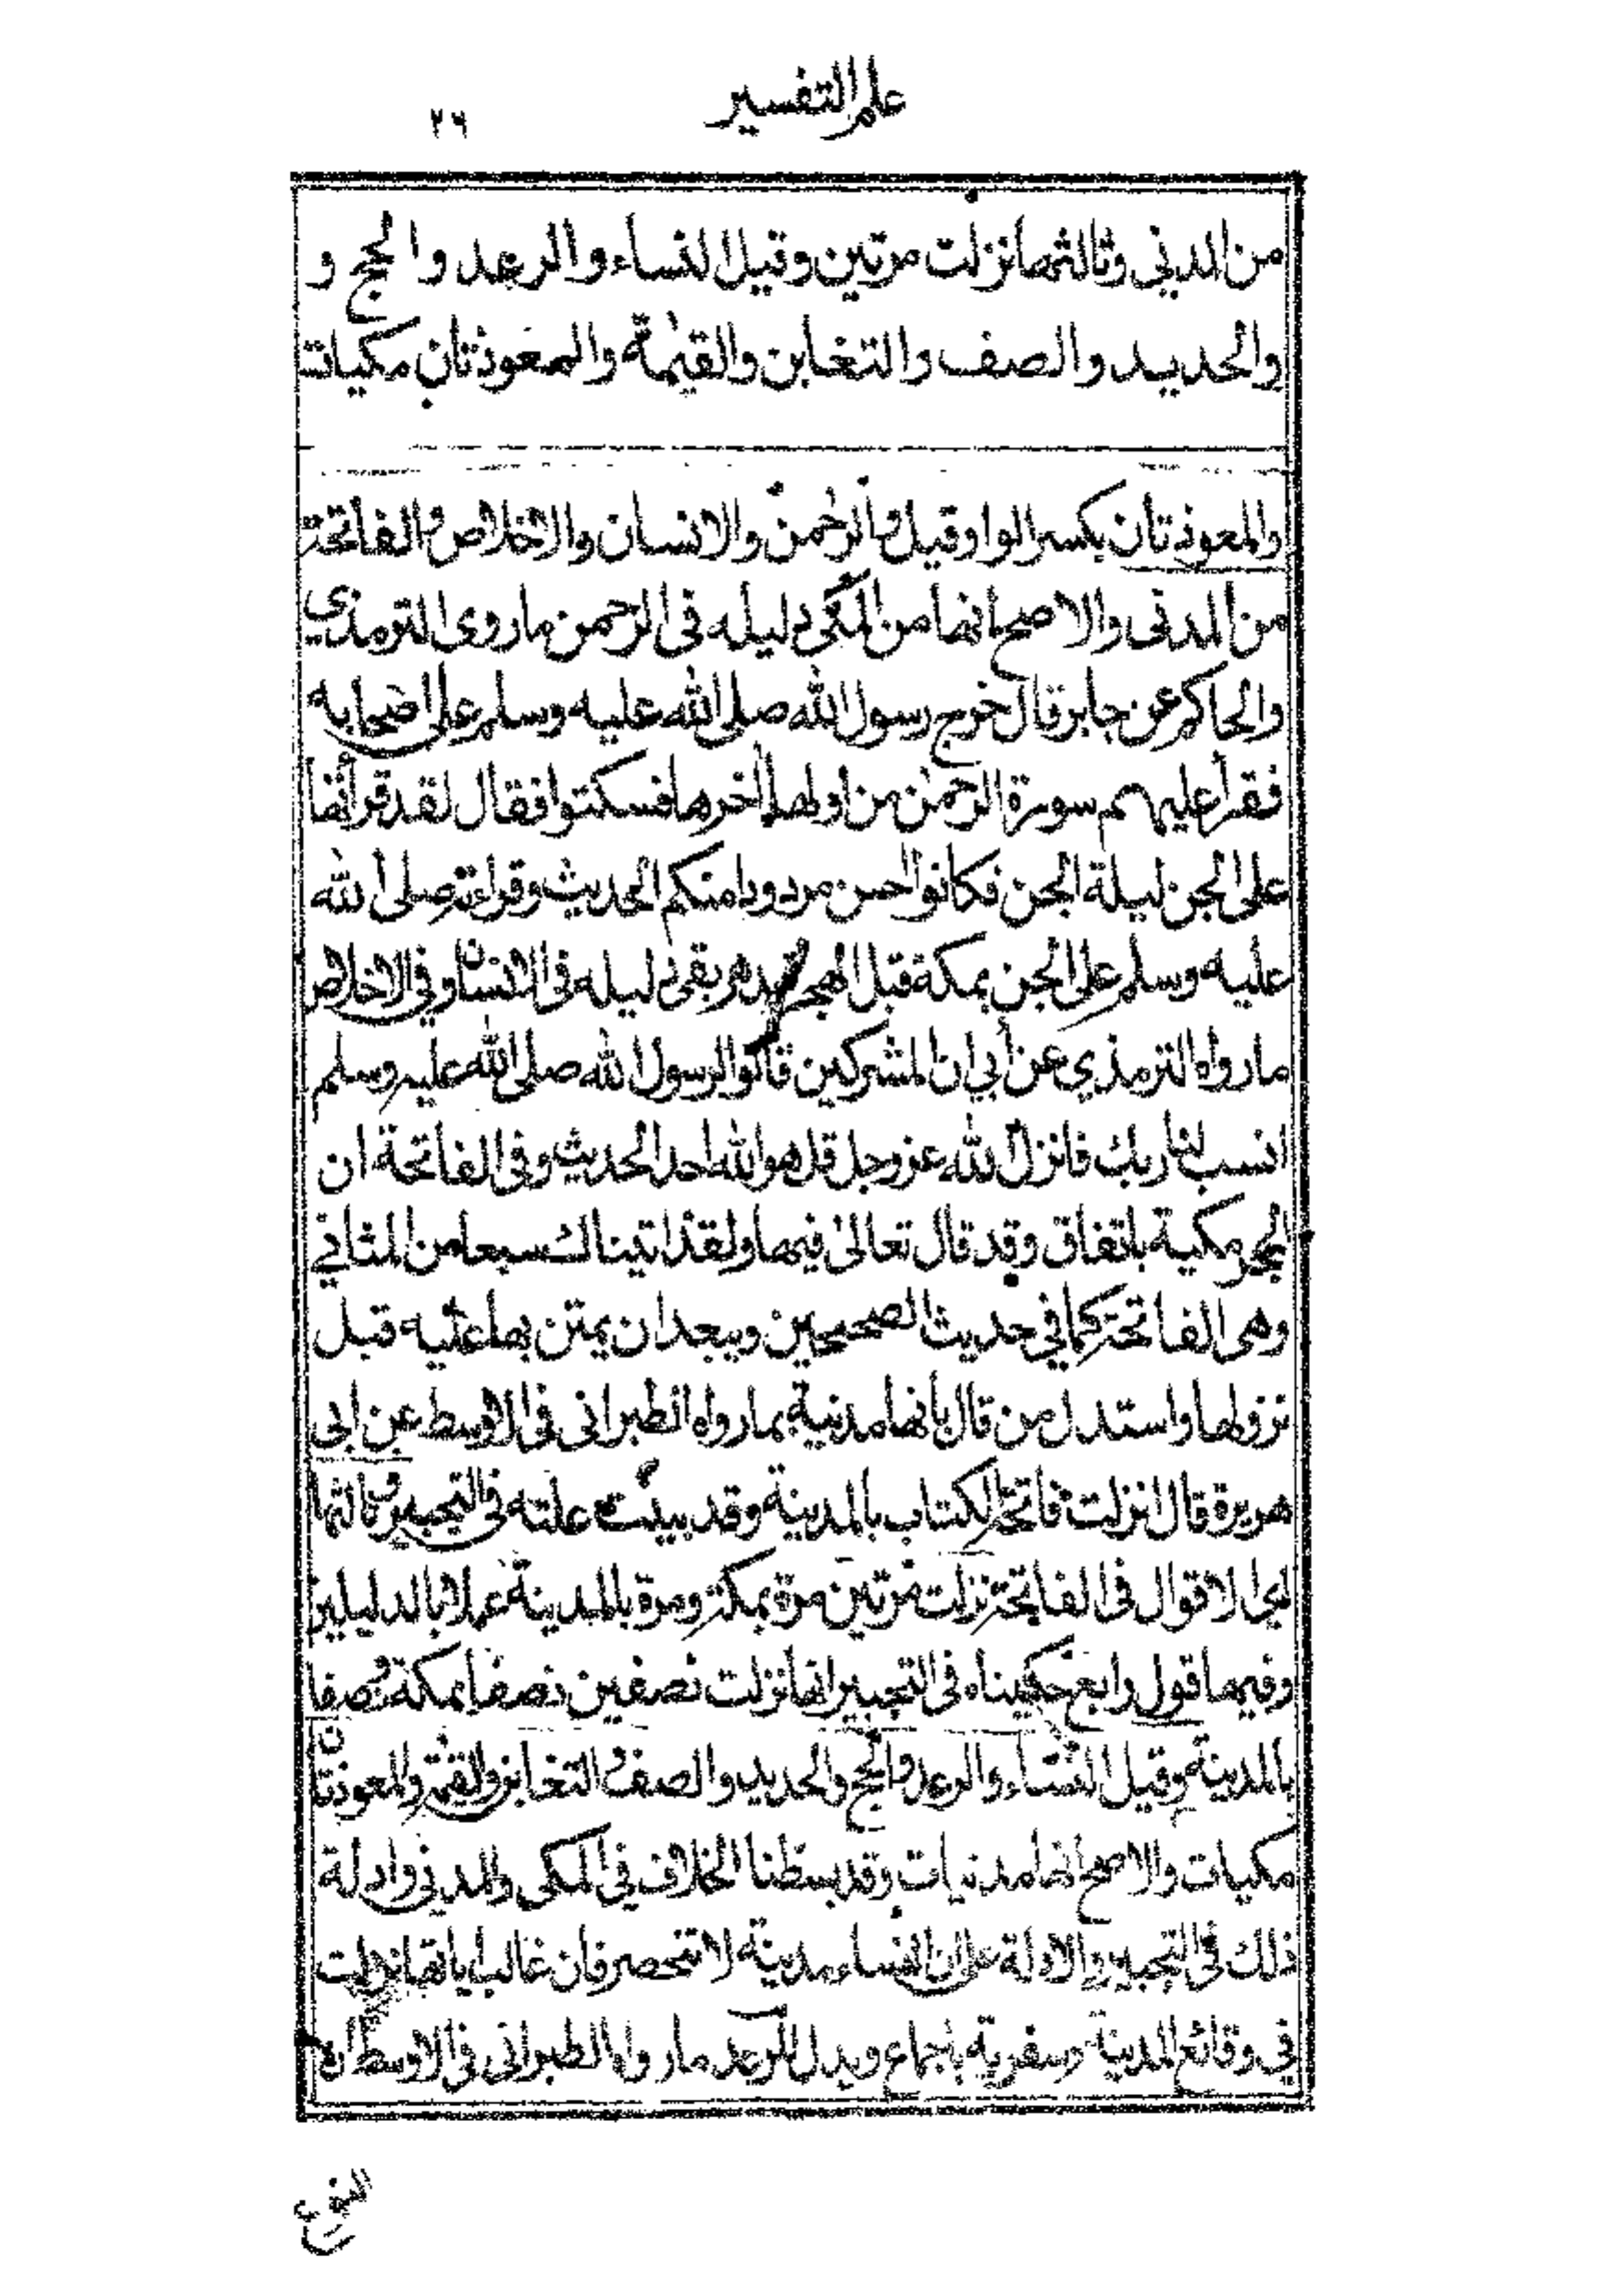 علم التفسير
٢٦
من المدني وثالثها نزلت مرتين وقيل النساء والرعد والحج و
والحديد والصف والتغابن والقيمة والمعوذتان مكيات
والمعوذتان بكسر الواو وقيل والرحمن والانسان والاخلاص والفاتحة
من المدنى والاصح انها من المكى دليله فى الرحمن ما روى الترمذي
والحاكم عن جابر قال خرج رسول الله صلى الله عليه وسلم على اصحابه
فقرأ عليهم سورة الرحمن من اولها الى اخرها فسكتوا فقال لقد قرأتها
على الجن ليلة الجن فكانوا احسن مردودا منكم الحديث وقراءته صلى الله
عليه وسلم على الجن بمكة قبل الهجرة بدهر بقى دليله فى الانسان وفي الاخلاص
ما رواه الترمذي عن أبي ان المشركين قالوا لرسول الله صلى الله عليه وسلم
انسب لنا ربك فانزل الله عز وجل قل هو الله احد الحديث وفى الفاتحة ان
الحجر مكية باتفاق وقد قال تعالى فيها ولقد اتيناك سبعا من المثاني
وهى الفاتحة كما في حديث الصحيحين ويبعد ان يمتن بها عليه قبل
نزولها واستدل من قال بانها مدنية بما رواه الطبرانى فى الاوسط عن ابى
هريرة قال انزلت فاتحة الكتاب بالمدينة وقد بينت علته فى التحبير وثالثها
اي الاقوال فى الفاتحة نزلت مرتين مرة بمكة ومرة بالمدينة عملا بالدليلين
وفيها قول رابع حكيناه فى التحبير انها نزلت نصفين نصفا بمكة ونصفا
بالمدينة وقيل النساء والرعد والحج والحديد والصف والتغابن والقيمة والمعوذتان
مكيات والاصح انها مدنيات وقد بسطنا الخلاف في المكى والمدني وادلة
ذلك فى التحبير والادلة على ان النساء مدنية لا تنحصر فان غالب اياتها نزلت
في وقائع المدينة وسفرية باجماع ويدل للرعد ما رواه الطبرانى فى الاوسط ان
النوع